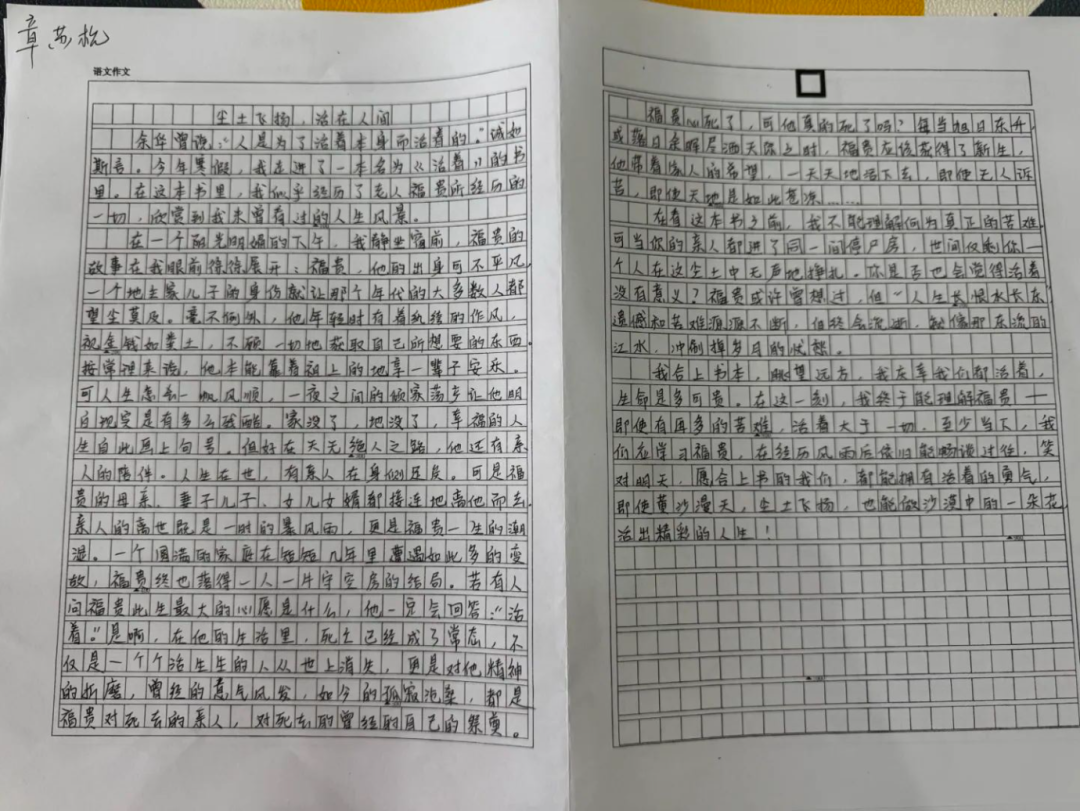 章
语文作文
尘土飞扬，活在人间
余华曾说：“人是为了活着本身而活着的。”诚如
斯言。今年寒假，我走进了一本名为《活着》的书
里。在这本书里，我似乎经历了老人福贵所经历的
一切，欣赏到我未曾看过的人生风景。
在一个阳光明媚的下午，我静坐窗前，福贵的
故事在我眼前徐徐展开：福贵，他的出身可不平凡，
一个地主家儿子的身份就让那个年代的大多数人都
望尘莫及。毫不例外，他年轻时有着纨绔的作风，
视金钱如粪土，不顾一切地获取自己所想要的东西。
按常理来说，他本能靠着祖上的地享一辈子安乐。
可人生怎会一帆风顺，一夜之间的倾家荡产让他明
白现实是有多么残酷。家没了，地没了，幸福的人
生自此画上句号。但好在天无绝人之路，他还有亲
人的陪伴。人生在世，有亲人在身侧足矣。可是福
贵的母亲、妻子儿子、女儿女婿都接连地离他而去。
亲人的离世既是一时的暴风雨，更是福贵一生的潮
湿。一个圆满的家庭在短短几年里遭遇如此多的变
故，福贵终也落得一人一片守空房的结局。若有人
问福贵此生最大的心愿是什么，他一定会回答：“活
着。”是啊，在他的生活里，死亡已经成了常态，不
仅是一个个活生生的人从世上消失，更是对他精神
的折磨，曾经的意气风发，如今的孤寂沧桑，都是
福贵对死去的亲人，对死去的曾经的自己的祭奠。
福贵心死了，可他真的死了吗？每当旭日东升
或落日余晖尽洒天际之时，福贵应该获得了新生，
他带着家人的希望，一天天地活下去，即使无人诉
苦，即使天地是如此苍凉……
在看这本书之前，我不能理解何为真正的苦难，
可当你的亲人都进了同一间停尸房，世间仅剩你一
个人在这尘土中无声地挣扎。你是否也会觉得活着
没有意义？福贵或许曾想过，但“人生长恨水长东”
遗憾和苦难源源不断，但终会流逝，就像那东流的
江水，冲刷掉岁月的
我合上书本，眺望远方，我庆幸我们都活着，
生命是多可贵。在这一刻，我终于能理解福贵——
即使有再多的苦难，活着大于一切。至少当下，我
们应学习福贵，在经历风雨后依旧能畅谈过往，笑
对明天，愿合上书的我们，都能拥有活着的勇气，
即使黄沙漫天，尘土飞扬，也能做沙漠中的一朵花，
活出精彩的人生！